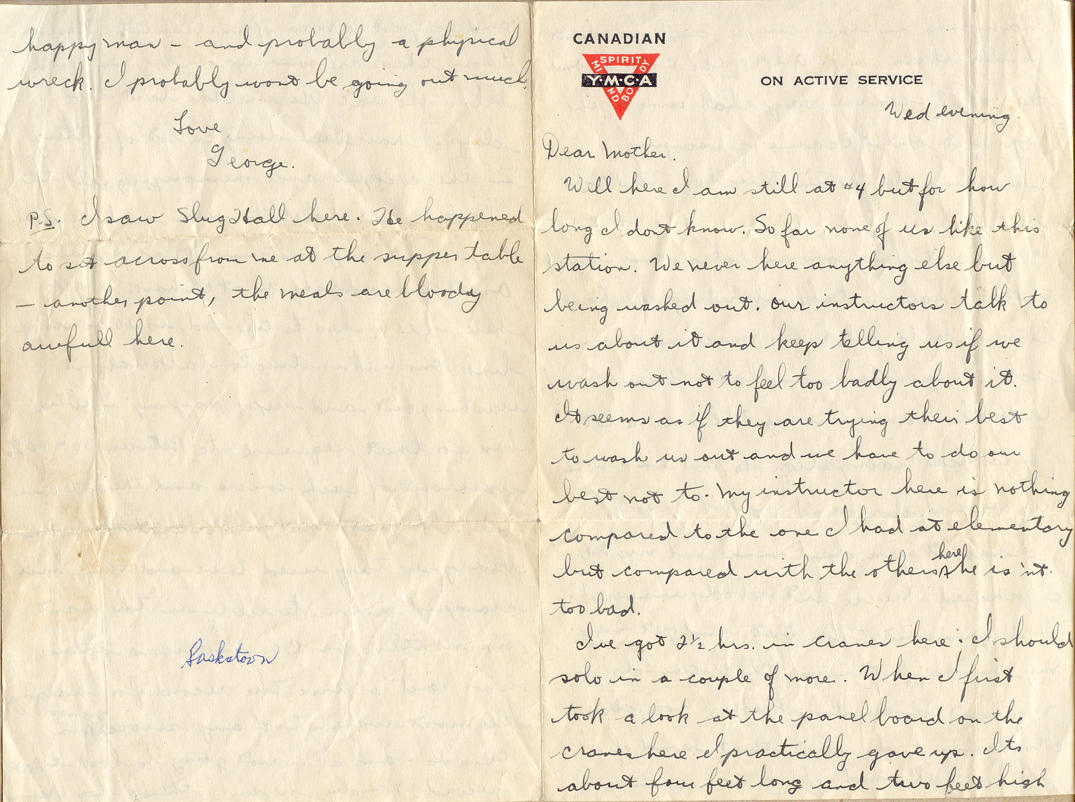 happy man - and probably a physical
wreck. I probably wont be going out much.
Love
George.
P.S. I saw Slug Hall here. He happened
to sit across from me at the supper table
- another point, the meals are bloody
awfull here.
Saskatoon
CANADIAN
SPIRIT
MIND
BODY
Y·M·C·A
ON ACTIVE SERVICE
Wed evening.
Dear Mother.
Well here I am still at #4 but for how
long I dont know. So far none of us like this
station. We never here anything else but
being washed out. Our instructors talk to
us about it and keep telling us if we
wash out not to feel too badly about it.
It seems as if they are trying their best
to wash us out and we have to do our
best not to. My instructor here is nothing
compared to the one I had at elementary
but compared with the others here he is'nt
too bad.
I've got 2½ hrs. in cranes here; I should
solo in a couple of more. When I first
took a look at the panel board on the
cranes here I practically gave up. Its
about four feet long and two feet high